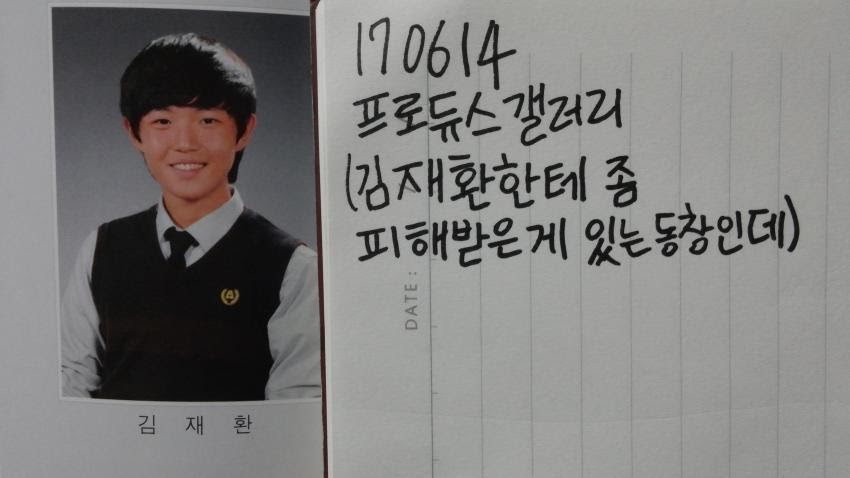 170614
프로듀스갤러리
(김재환한테 좀
피해받은게 있는동창인데)
DATE :
김 재 환